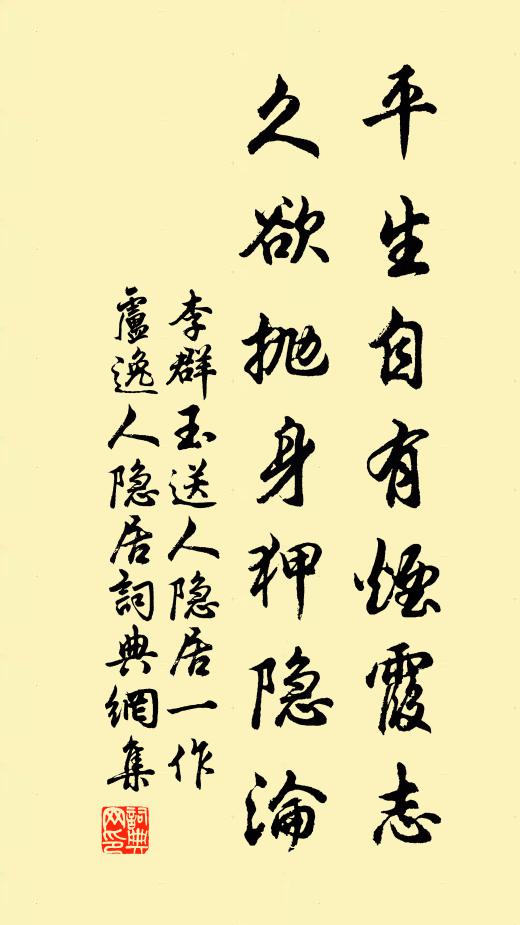 平生自有煙霞志
久欲抛身狎隐淪
李群玉送人隐居一作
盧逸人隐居詞典網集
詞典网印